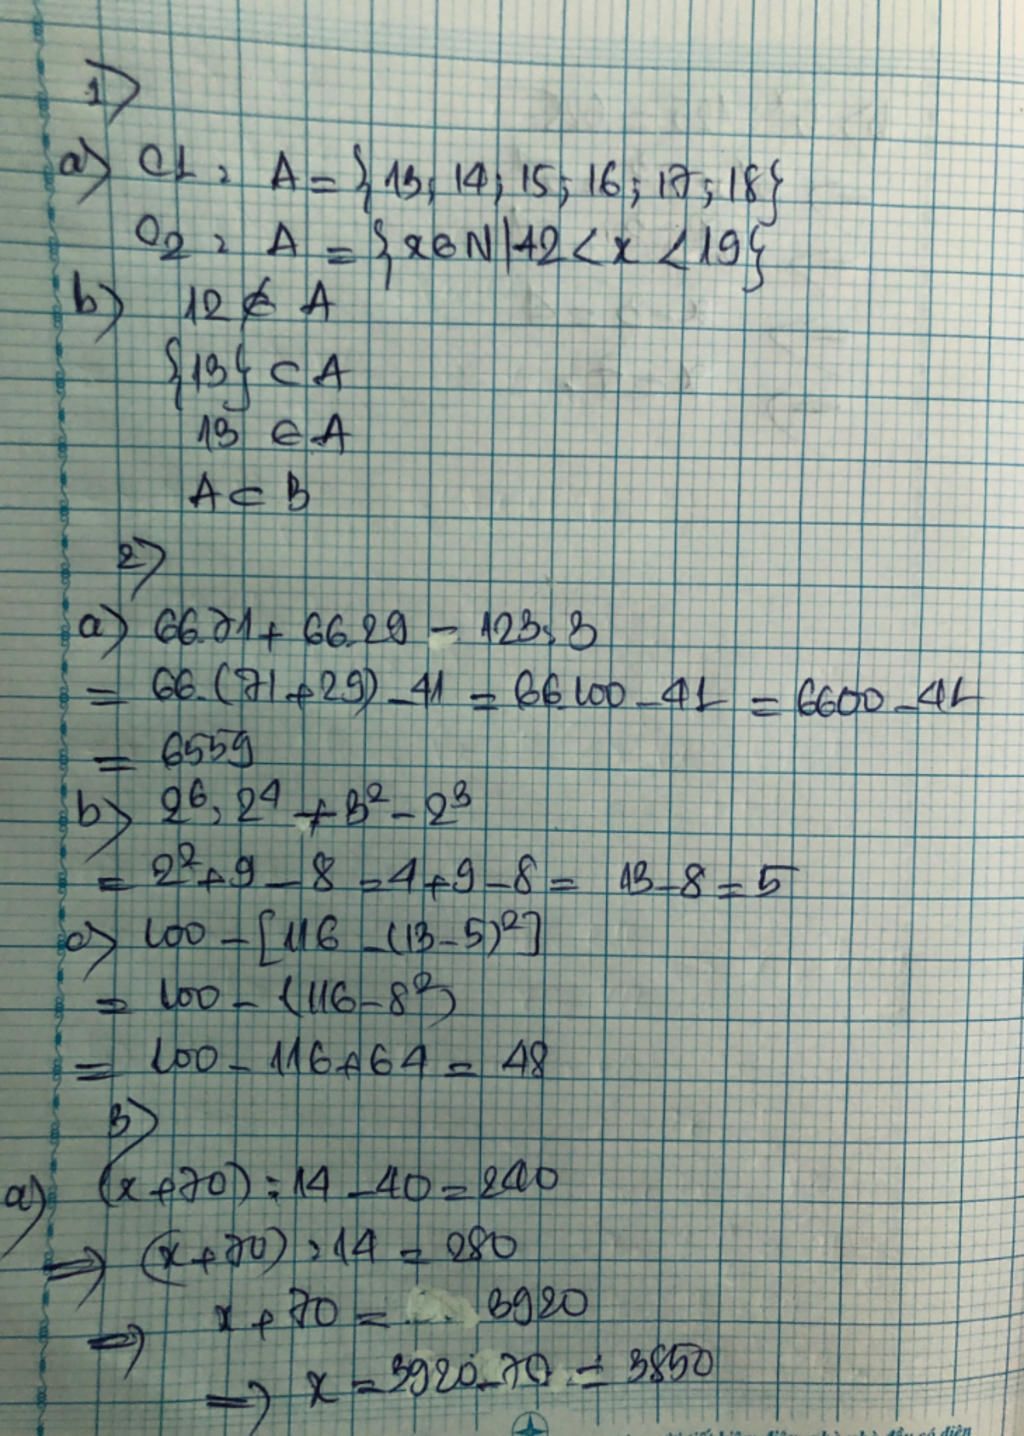 1)
a) C1 : A = {13; 14; 15; 16; 17; 18}
C2 : A = {x∈N | 12 < x < 19}
b) 12 ∉ A
{13} ⊂ A
13 ∈ A
A ⊂ B
2)
a) 66.71 + 66.29 - 123:3
= 66.(71+29) - 41 = 66.100 - 41 = 6600 - 41
= 6559
b) 2⁶ : 2⁴ + 3² - 2³
= 2² + 9 - 8 = 4 + 9 - 8 = 13 - 8 = 5
c) 100 - [116 - (13 - 5)²]
= 100 - (116 - 8²)
= 100 - 116 + 64 = 48
3)
a) (x + 70) : 14 - 40 = 240
=> (x + 70) : 14 = 280
=> x + 70 = 3920
=> x = 3920 - 70 = 3850